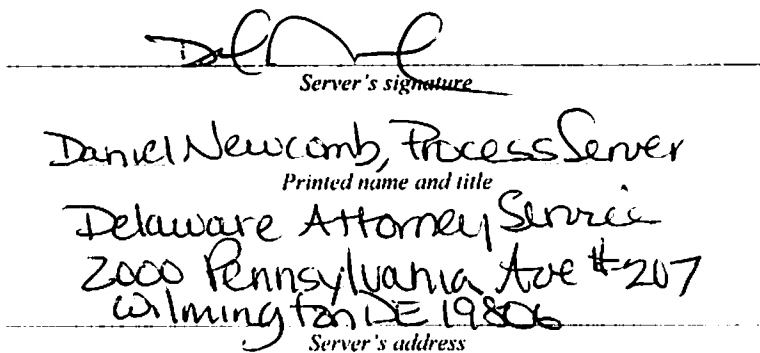 Server's signature
Daniel Newcomb, Process Server
Printed name and title
Delaware Attorney Service
2000 Pennsylvania Ave #207
Wilmington DE 19806
Server's address